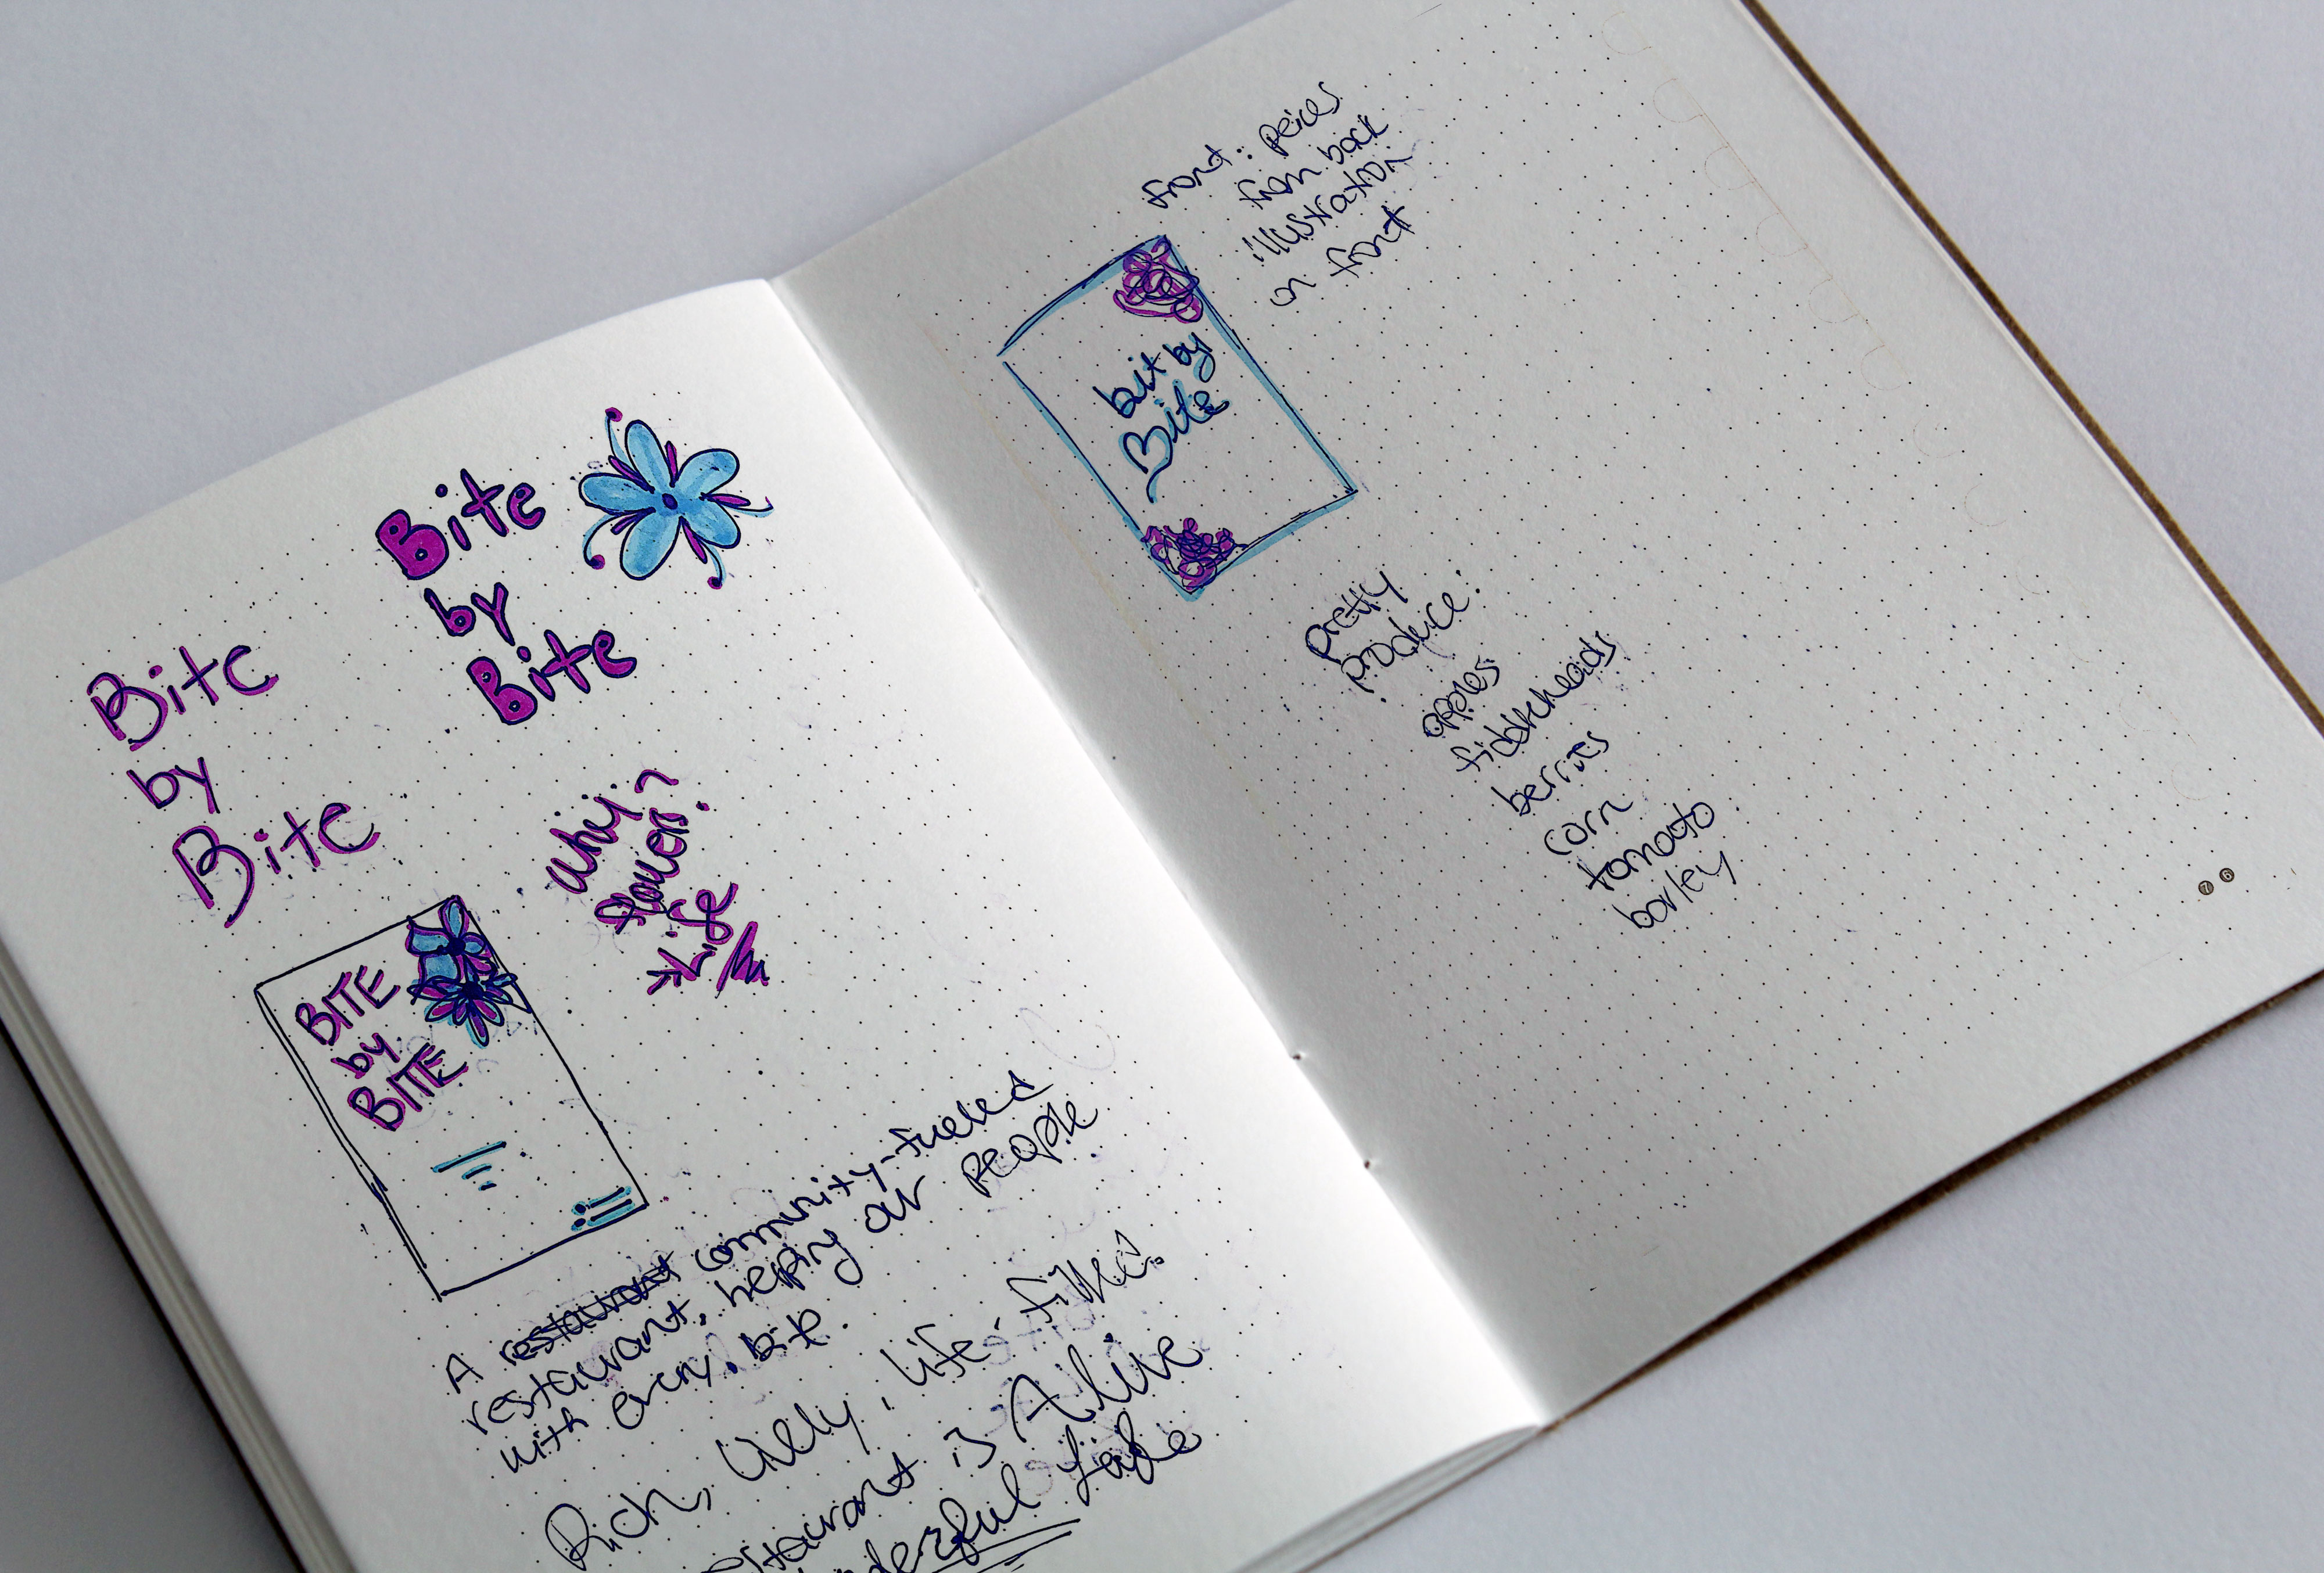 Bite
by
Bite
Bite
by
Bite
Why
flower?
Life
BITE
by
BITE
A restaurant community-fueled
restaurant, helping our people
with every bite.
Rich, Lively, life-filled.
restaurant is Alive
Front: peices
from back
illustration
on front
by
Bite
pretty
produce:
apples
fiddleheads
berries
corn
tomato
barley